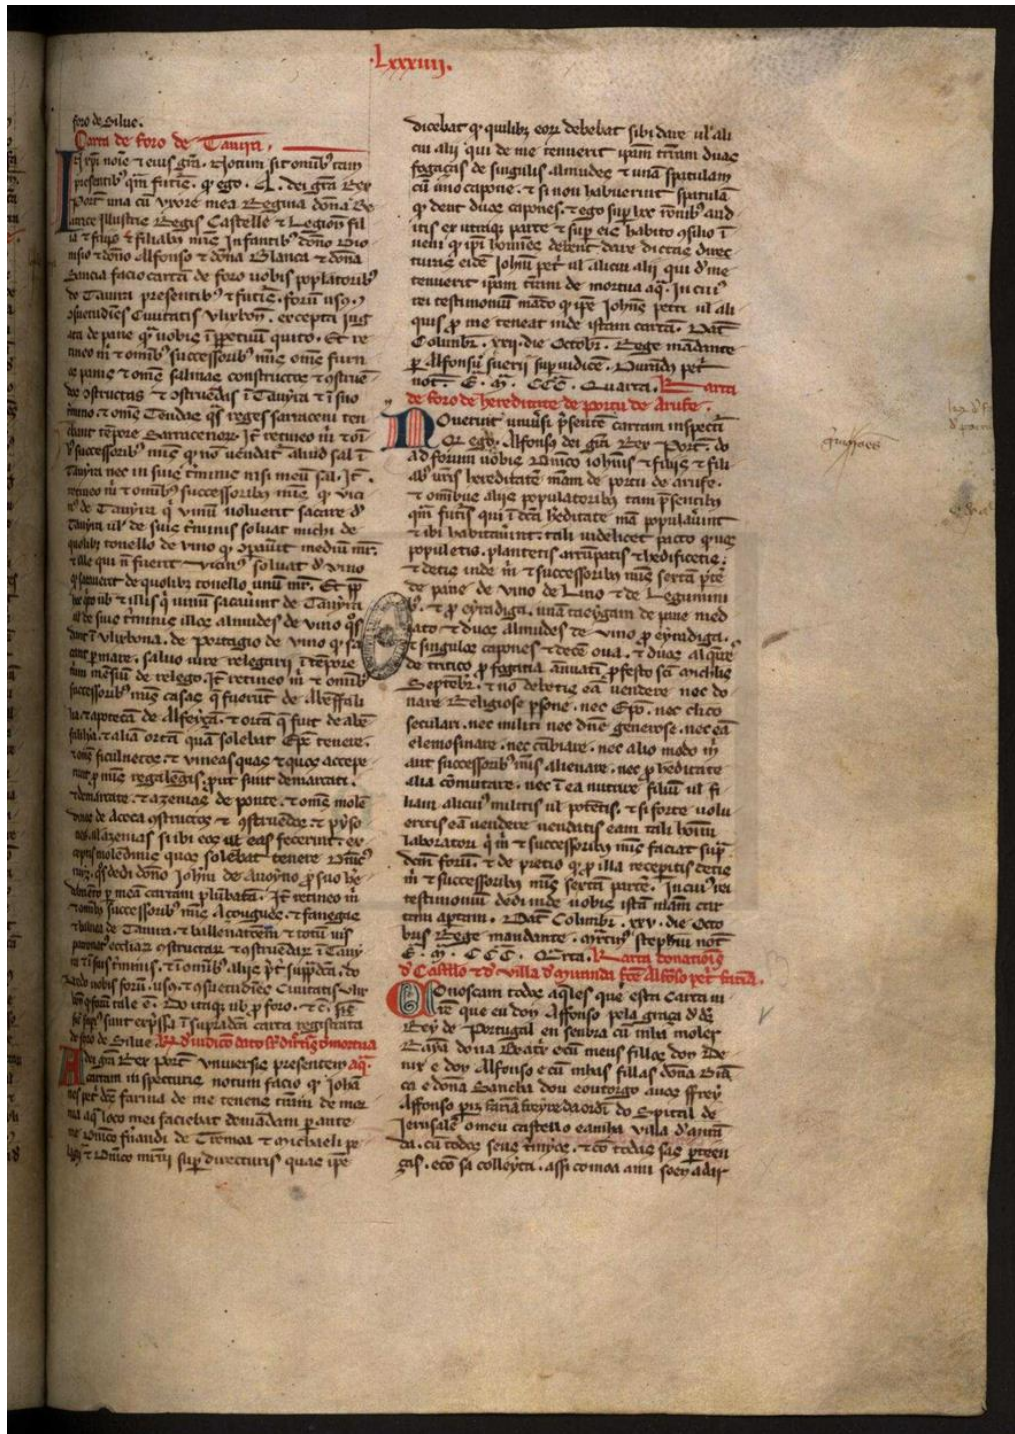 .Lxxxiiij.
foro de Silue.
Carta de foro de Tauira.
In xpi noie ⁊ eius gra. Notum sit omnib⁹ tam
presentib⁹ qm futuris. q̄ ego. A. dei gra Rex
Port una cū vxore mea Regina dona Be
atrice Illustris Regis Castelle ⁊ Legion̄ fil
ia ⁊ filijs ⁊ filiab⁹ meis Infantib⁹ dono Dio
nisio ⁊ dono Alfonso ⁊ dona Blanca ⁊ dona
Sancia facio cartā de foro uobis poplatorib⁹
de Tauira presentib⁹ ⁊ futuris. forū usos ⁊
ɔsuetudies Ciuitatis Vlixbon̄. excepta iug
ata de pane q̄ uobis ī ppetuū quito. Et re
tineo m̄ ⁊ omib⁹ successorib⁹ meis omes furn
os panis ⁊ omes salinas constructas ⁊ ɔstruē
das ī Tauira ⁊ ī suo
t̄mino. ⁊ omes Tendas q̄s reges sarraceni ten
ebant tēpore Sarracenor. Iť retineo m̄ ⁊ oī
b⁹ successorib⁹ meis q̄ nō uendať aliud sal ī
Tauira nec in suis t̄minis nisi meū sal. Iť.
retineo m̄ ⁊ omib⁹ successorib⁹ meis q̄ vici
n⁹ de Tauira q̄ vinū uoluerit sacare d̄
Tauira ul de suis t̄minis soluat michi de
quolibȝ tonello de vino mediū mr̄.
⁊ ille qui n̄ fuerit vicin⁹ soluat d̄ vino
de quolibȝ tonello unū mr̄. Et
de Tauira
ul de suis t̄minis illos almudes de vino q̄s
ī Vlixbona. de portagio de vino q̄
p mare. saluo iure relegarij ī tēpore
triū mēsiū de relego. Iť retineo m̄ ⁊ omib⁹
successorib⁹ meis casas q̄ fuerunt de Abeffali
la. ⁊ apotecā de Alfeyçā. ⁊ ortā q̄ fuit de abē
falila. ⁊ aliā ortā quā solebat Eps tenere.
⁊ omes ficulnetos. ⁊ vineas quas ⁊ quos accepe
runt p meis regalengis. put sunt demarcati.
⁊ demarcate. ⁊ azenias de ponte. ⁊ omes molē
dinos de Aceca ɔstructos ⁊ ɔstruēdos.
azenias si ibi eos ul eas fecerint. ex
ceptis molēdinis quos solebat tenere
q̄s dedi dono Johni de Auoyno p suo he
p meā cartam plūbatā. Iť retineo m̄
⁊ omib⁹ successorib⁹ meis Açougues. ⁊ fangas
⁊ balnea de Tauira. ⁊ ballenatiōem ⁊ totū ius
patronat⁹ ecclīar ɔstructar ⁊ ɔstruēdar ī Tauy
ra ⁊ ī suis t̄minis. ⁊ ī omib⁹ alijs
uobis forū. usos. ⁊ ɔsuetudies Ciuitatis Vlix
tale ē. Do
sunt exp̄ssa ī supdcā carta registrata
de foro de Silue.
dei gra Rex Port Vniuersis presentem
cartam inspecturis notum facio q̄ Johā
nes petri farina de me tenens t̄ram de mor
tua aq̄ loco mei faciebat demādam p ante
me Dn̄ico fn̄andi de Tremoa ⁊ Michaeli pe
⁊ Dn̄ico mr̄ini sup directuris quas ipe
dicebat q̄ quilibȝ eor debebat sibi dare ul ali
cui alij qui de me tenuerit ipam t̄ram duas
fogaças de singulis almudes ⁊ unā spatulam
cū uno capone. ⁊ si non habuerint spatulā
q̄ dent duos capones. ⁊ ego sup hec rōnib⁹ aud
itis ex utraq̄ parte ⁊ sup eis habito ɔsilio ī
ueni q̄ ipi homines debent dare dictas direc
turas eidē Johni petri ul alicui alij qui d̄ me
tenuerit ipam t̄ram de mortua aq̄. In cui⁹
rei testimoniū mādo q̄ ipe Johnes petri ul ali
quis p me teneat inde istam cartā. Dat̄
Colimbr̄. xxij. die Octobr̄. Rege mādante
p Alfonsū suerij supiudicē. Durād⁹ petri
not̄. E. M. CCC. Quarta. Karta
de foro de hereditate de portu de Arufe.
Nouerint uniūsi p̄sentē cartam inspectī
Q̄ ego. Alfonsus dei gra Rex Port. do
ad forum uobis Dn̄ico iohn̄is ⁊ filijs ⁊ fili
ab⁹ uris hereditatē meam de portu de arufe.
⁊ omibus alijs populatoribȝ tam p̄sentibȝ
qm futuris qui ī dcā heditate mea populauīnt
⁊ ibi habitauīnt. tali uidelicet pacto q̄ uos
populetis. plantetis arrūpatis ⁊ hedificetis.
⁊ detis inde m̄ ⁊ successoribȝ meis sextā ptē
de pane de vino de Lino ⁊ de Legumini
b⁹. ⁊ p eyradiga. unā taeygam de pane med
iato ⁊ duos almudes de vino p eyradiga.
⁊ singulos capones ⁊ decē oua. ⁊ duos alqueires
de tritico p fogatia annuatī p festo sci Michlis
Septebr̄. ⁊ nō debetis eā uendere nec do
nare Religiose psone. nec Epō. nec clico
seculari. nec militi nec dn̄e generose. nec eā
elemosinare. nec cābiare. nec alio modo m̄
aut successorib⁹ meis alienare. nec p heditate
alia cōmutare. nec ī ea nutrire filiū ul fi
liam alicui⁹ militis ul potētis. ⁊ si forte uolu
eritis eā uendere uendatis eam tali homī
laboratori q̄ m̄ ⁊ successoribȝ meis faciat sup
dcm forū. ⁊ de pretio q̄ p illa receptis detis
m̄ ⁊ successoribȝ meis sextā partē. In cui⁹ rei
testimoniū dedi inde uobis istā meam car
tam aptam. Dat̄ Colimbr̄. xxv. die Octo
bris Rege mandante. Mr̄tin⁹ stephni not̄
E. M. CCC. Qrta. Karta donationis
d̄ Castello ⁊ d̄ villa d̄ Miranda fcē Alfōso petri farinā.
Conoscam todos aq̄les que esta Carta ui
rē que eu don Affonso pela graça d̄ ds̄
Rey de Portugal en senbra cū mha moler
Raya dona Beatr̄ ecū meus fillos don De
nis e don Alfonso e cū mhas fillas dona Brā
ca e dona Sancha dou eoutorgo auos ffrey
Affonso piz farina freyre da ordī do Spital de
Jerusalē omeu castello eamha villa d̄ mirā
da. cū todos seus t̄mhos. ⁊ cō todas sas pteen
ças. ecō sa colleyta. assi comoa ami soen adar